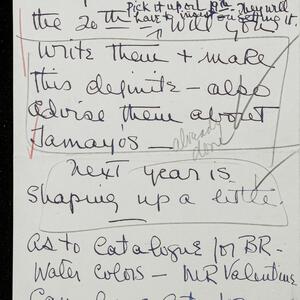 Pick it up on They will
the 20th have to insist on getting it.
Will you
Write them + make
this definite – also
advise them about
Tamayo's –
already
done
Next year is
shaping up a little.
As to Catalogue for BR-
Water colors – MR Valentine